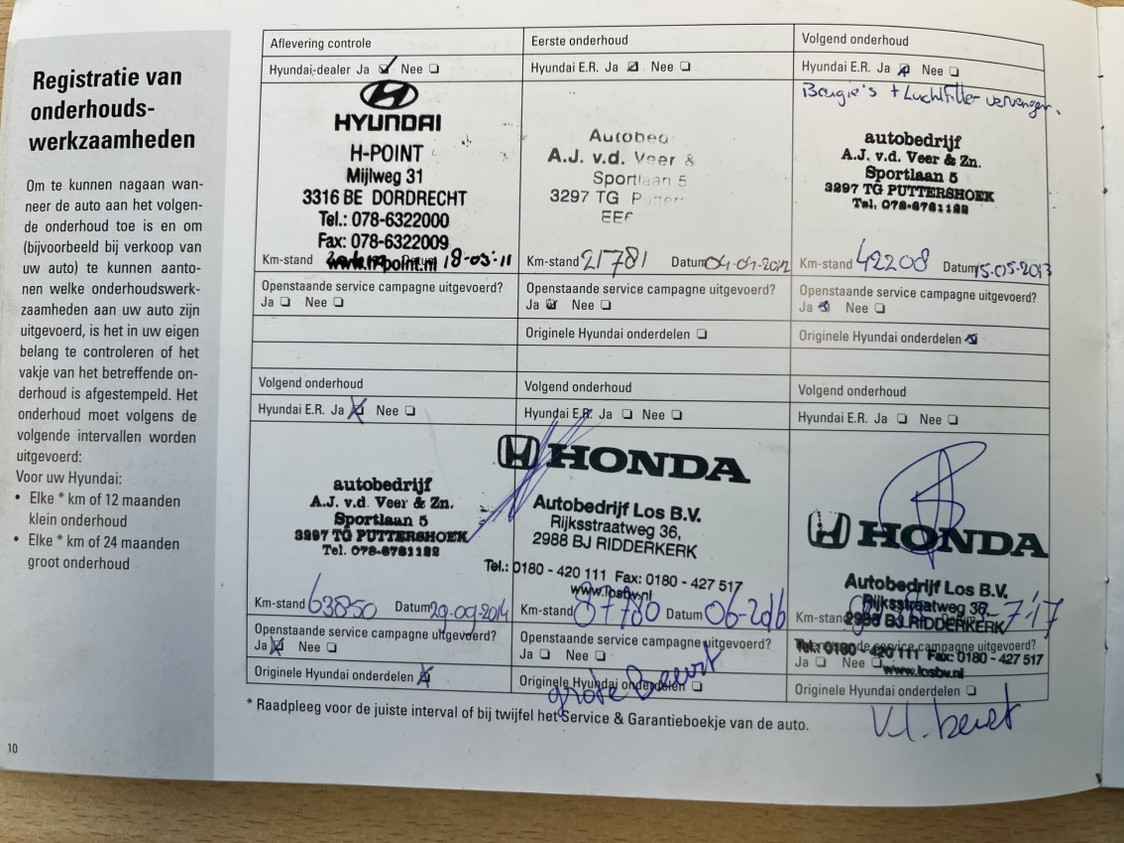 Registratie van
onderhouds-
werkzaamheden
Om te kunnen nagaan wan-
neer de auto aan het volgen-
de onderhoud toe is en om
(bijvoorbeeld bij verkoop van
uw auto) te kunnen aanto-
nen welke onderhoudswerk-
zaamheden aan uw auto zijn
uitgevoerd, is het in uw eigen
belang te controleren of het
vakje van het betreffende on-
derhoud is afgestempeld. Het
onderhoud moet volgens de
volgende intervallen worden
uitgevoerd:
Voor uw Hyundai:
• Elke * km of 12 maanden
klein onderhoud
• Elke * km of 24 maanden
groot onderhoud
10
Aflevering controle
Hyundai-dealer Ja Nee
HYUNDAI
H-POINT
Mijlweg 31
3316 BE DORDRECHT
Tel.: 078-6322000
Fax: 078-6322009
www.h-point.nl
Km-stand Datum 18-03-11
Openstaande service campagne uitgevoerd?
Ja Nee
Eerste onderhoud
Hyundai E.R. Ja Nee
Autobed
A.J. v.d. Veer &
Sportlaan 5
3297 TG
Km-stand 21781 Datum 04-04-2012
Openstaande service campagne uitgevoerd?
Ja Nee
Originele Hyundai onderdelen
Volgend onderhoud
Hyundai E.R. Ja Nee
Bougie's + Luchtfilter vervangen.
autobedrijf
A.J. v.d. Veer & Zn.
Sportlaan 5
3297 TG PUTTERSHOEK
Tel. 078-6761122
Km-stand 42208 Datum 15-05-2013
Openstaande service campagne uitgevoerd?
Ja Nee
Originele Hyundai onderdelen
Volgend onderhoud
Hyundai E.R. Ja Nee
autobedrijf
A.J. v.d. Veer & Zn.
Sportlaan 5
3297 TG PUTTERSHOEK
Tel. 078-6761122
Km-stand 63850 Datum 29-09-2014
Openstaande service campagne uitgevoerd?
Ja Nee
Originele Hyundai onderdelen
Volgend onderhoud
Hyundai E.R. Ja Nee
HONDA
Autobedrijf Los B.V.
Rijksstraatweg 36,
2988 BJ RIDDERKERK
Tel.: 0180 - 420 111 Fax: 0180 - 427 517
www.losbv.nl
Km-stand 87780 Datum 06-2016
Openstaande service campagne uitgevoerd?
Ja Nee
Originele Hyundai onderdelen
grote Beurt
Volgend onderhoud
Hyundai E.R. Ja Nee
HONDA
Autobedrijf Los B.V.
Rijksstraatweg 36,
2988 BJ RIDDERKERK
Km-stand
Tel.: 0180 - 420 111 Fax: 0180 - 427 517
www.losbv.nl
service campagne uitgevoerd?
Ja Nee
Originele Hyundai onderdelen
beurt
* Raadpleeg voor de juiste interval of bij twijfel het Service & Garantieboekje van de auto.